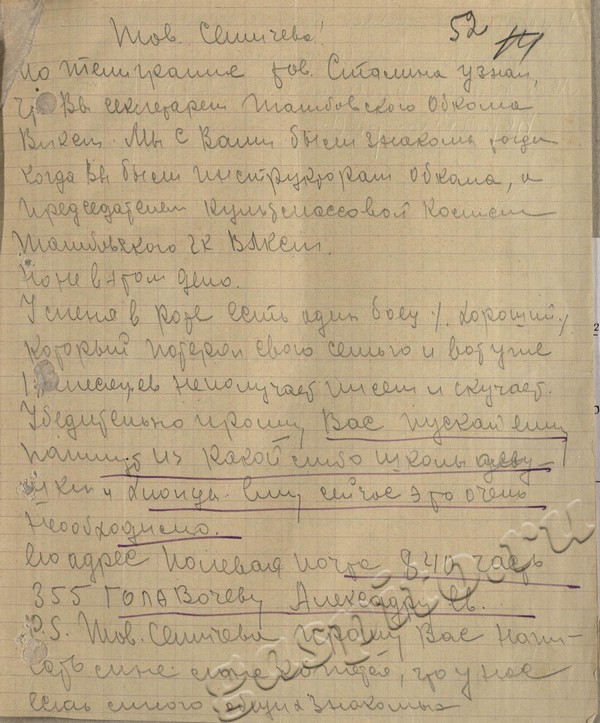 52
Тов. Семичева!
По телеграмме тов. Сталина узнал,
что Вы секретарем Тамбовского Обкома
ВЛКСМ. Мы с Вами были знакомы тогда
когда Вы были инструктором Обкома, а
председателем культмассовой комиссии
Тамбовского ГК ВЛКСМ.
Но не в этом дело.
У меня в роте есть один боец /. хороший /.
который потерял свою семью и вот уже
месяцев неполучает писем и скучает.
Убедительно прошу Вас пускай ему
напишут из какой либо школы деву-
шки и хлопцы. Ему сейчас это очень
необходимо.
Его адрес Полевая почта 840 часть
355 Александру Ев.
P.S. Тов. Семичева прошу Вас напи-
сать мне что у нас
есть много общих знакомых
gaspito.ru